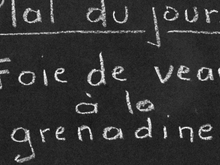 Plat du jour
Foie de veau
à la
grenadine